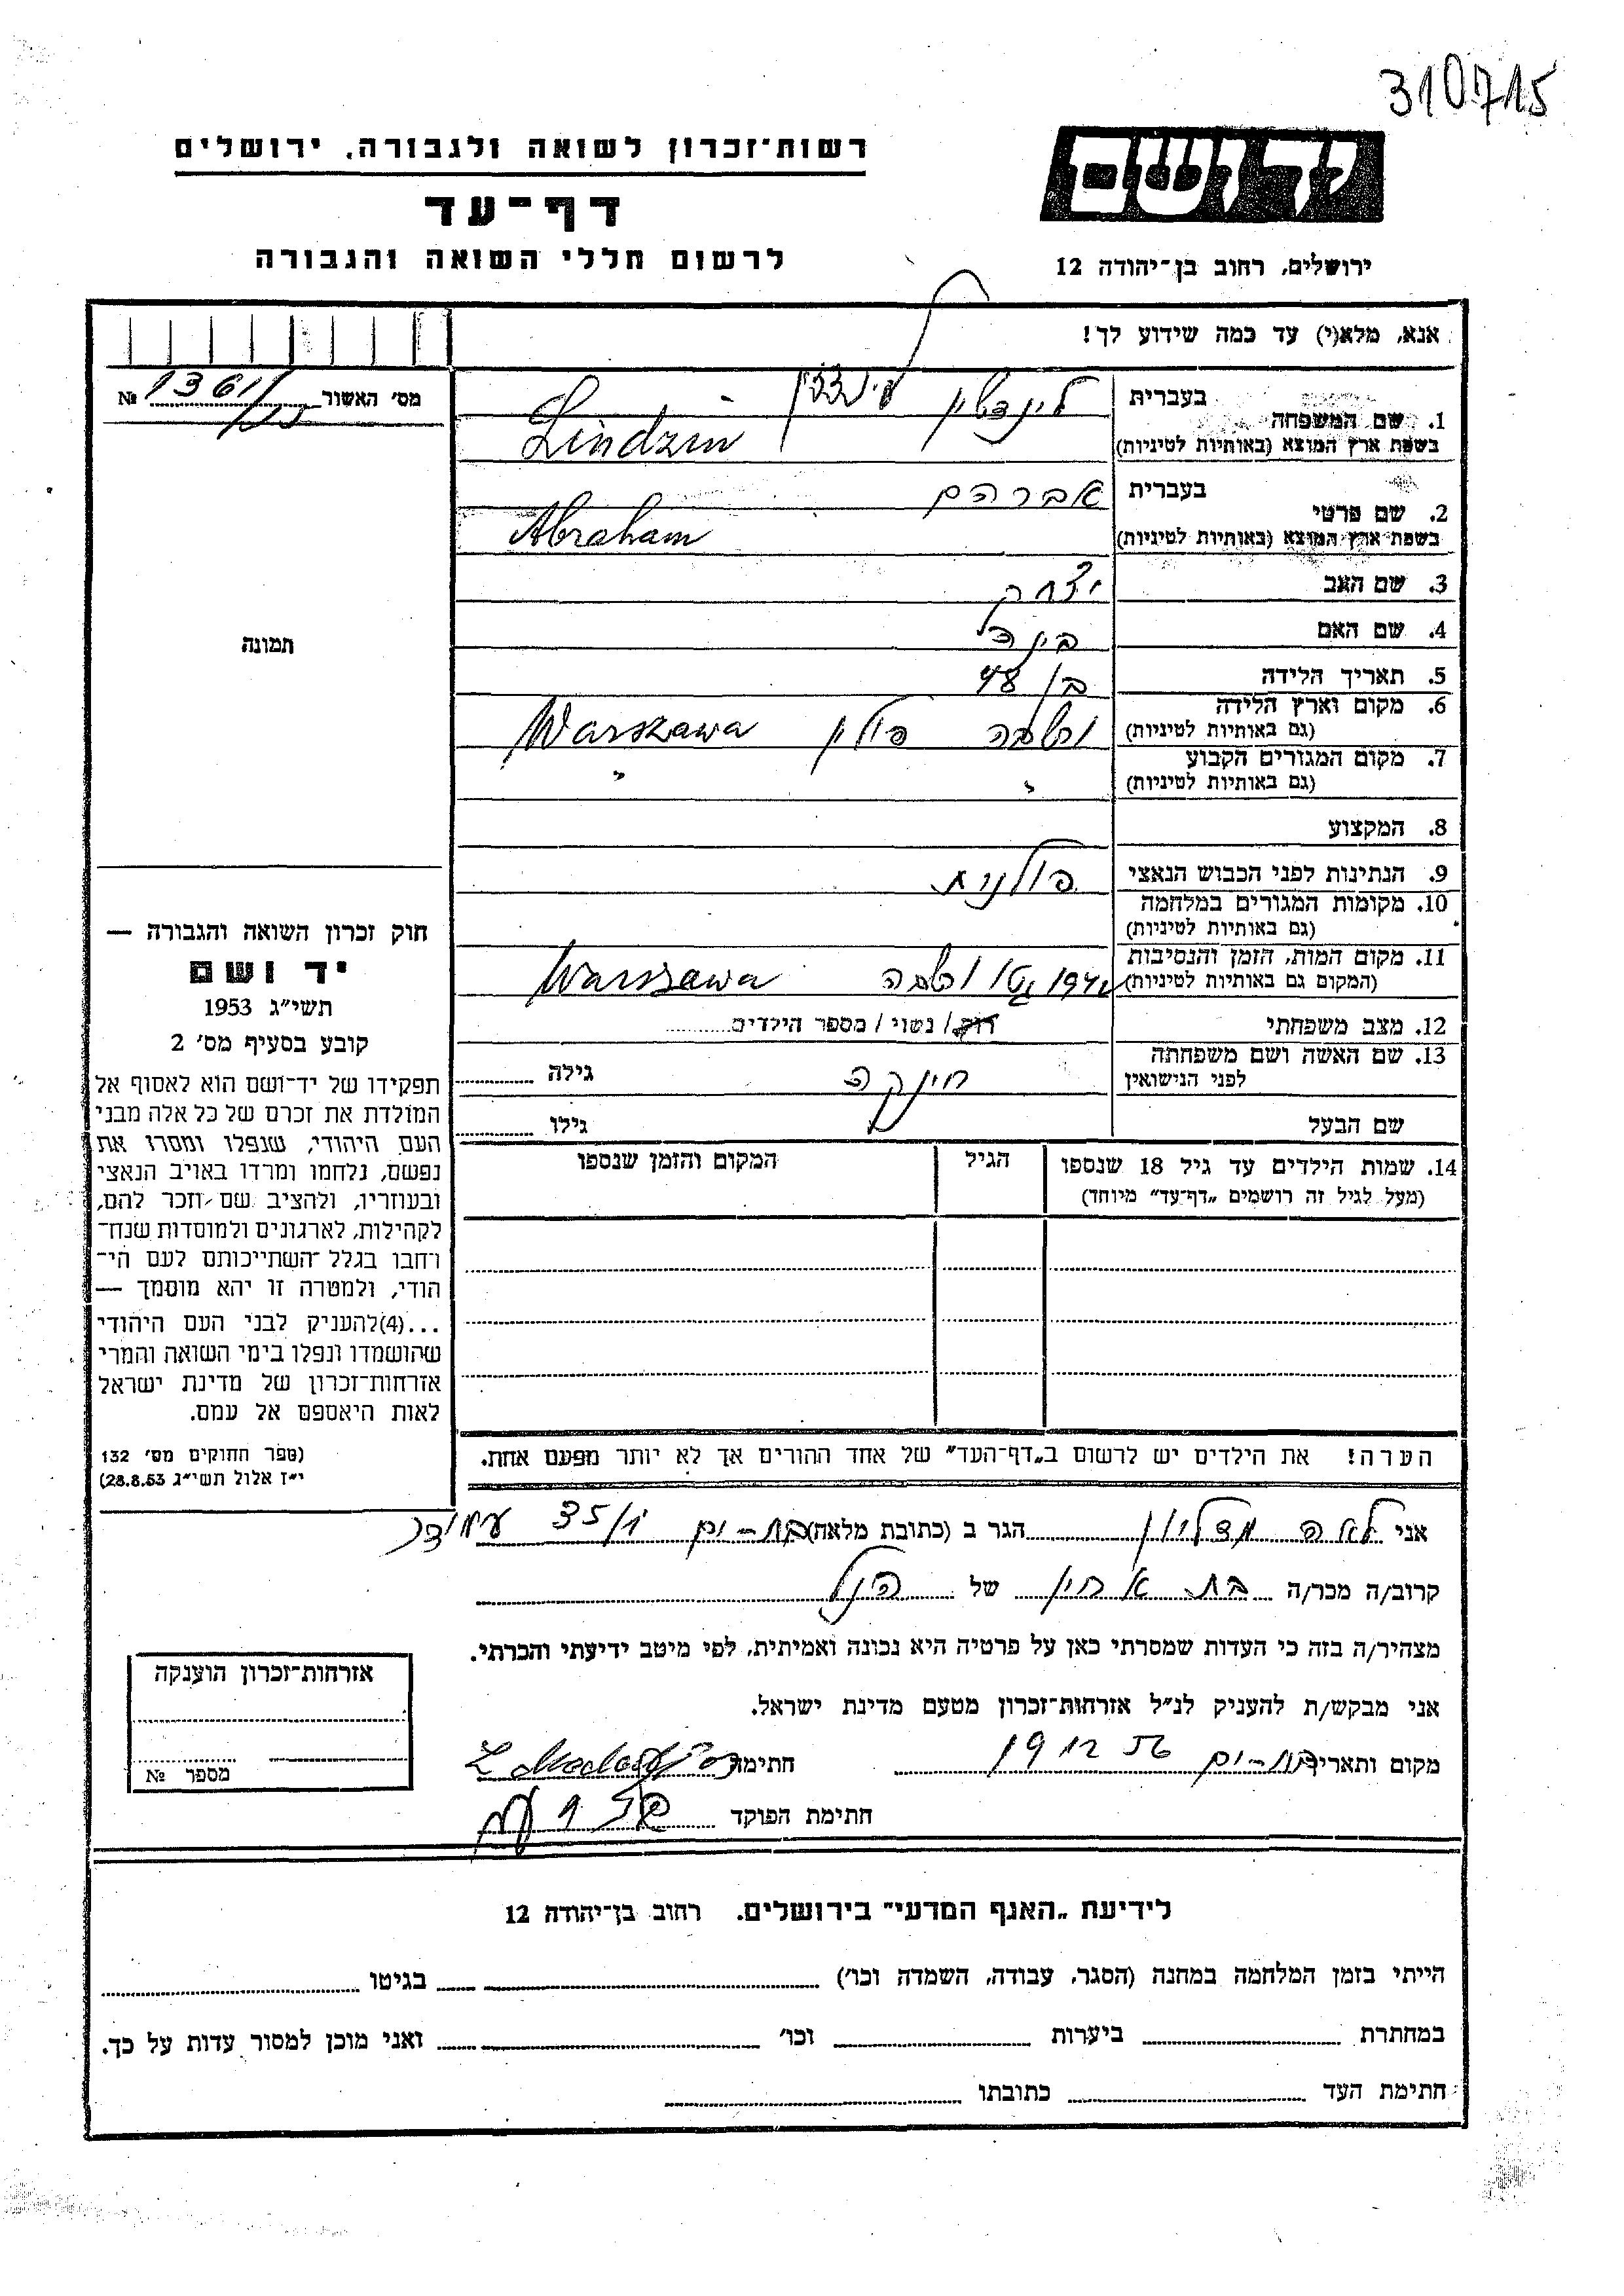 310715
רשות-זכרון לשואה ולגבורה, ירושלים
דף-עד
לרשום חללי השואה והגבורה
יד ושם
ירושלים, רחוב בן-יהודה 12
אנא, מלא(י) עד כמה שידוע לך!
מס' האשור № 1361/
1. שם המשפחה
בעברית
בשפת ארץ המוצא (באותיות לטיניות) Lindzin
2. שם פרטי
בעברית אברהם
בשפת ארץ המוצא (באותיות לטיניות) Abraham
3. שם האב יצחק
4. שם האם
5. תאריך הלידה בן 48
6. מקום וארץ הלידה
(גם באותיות לטיניות) ורשבה פולין Warszawa
7. מקום המגורים הקבוע
(גם באותיות לטיניות) " "
8. המקצוע
9. הנתינות לפני הכבוש הנאצי פולנית
10. מקומות המגורים במלחמה
(גם באותיות לטיניות)
11. מקום המות, הזמן והנסיבות
(המקום גם באותיות לטיניות) גטו ורשבה Warszawa
12. מצב משפחתי רוק / נשוי / מספר הילדים
13. שם האשה ושם משפחתה
לפני הנישואין גילה
שם הבעל גילו
14. שמות הילדים עד גיל 18 שנספו
(מעל לגיל זה רושמים „דף-עד" מיוחד)
הגיל
המקום והזמן שנספו
הערה! את הילדים יש לרשום ב„דף-העד" של אחד ההורים אך לא יותר מפעם אחת.
תמונה
חוק זכרון השואה והגבורה —
יד ושם
תשי"ג 1953
קובע בסעיף מס' 2
תפקידו של יד-ושם הוא לאסוף אל
המולדת את זכרם של כל אלה מבני
העם היהודי, שנפלו ומסרו את
נפשם, נלחמו ומרדו באויב הנאצי
ובעוזריו, ולהציב שם וזכר להם,
לקהילות, לארגונים ולמוסדות שנח-
רחבו בגלל השתייכותם לעם הי-
הודי, ולמטרה זו יהא מוסמך —
...(4) להעניק לבני העם היהודי
שהושמדו ונפלו בימי השואה והמרי
אזרחות-זכרון של מדינת ישראל
לאות היאספם אל עמם.
(ספר החוקים מס' 132
י"ז אלול תשי"ג 28.8.53)
אני לאה הגר ב (כתובת מלאה) בת-ים 35/1
קרוב/ה מכר/ה בת אחין של הנ"ל
מצהיר/ה בזה כי העדות שמסרתי כאן על פרטיה היא נכונה ואמיתית, לפי מיטב ידיעתי והכרתי.
אני מבקש/ת להעניק לנ"ל אזרחות-זכרון מטעם מדינת ישראל.
מקום ותאריך בת-ים 19 12 56 חתימה
חתימת הפוקד
אזרחות-זכרון הוענקה
מספר №
לידיעת „האגף המדעי" בירושלים. רחוב בן-יהודה 12
הייתי בזמן המלחמה במחנה (הסגר, עבודה, השמדה וכו') בגיטו
במחתרת ביערות וכו' ואני מוכן למסור עדות על כך.
חתימת העד כתובתו